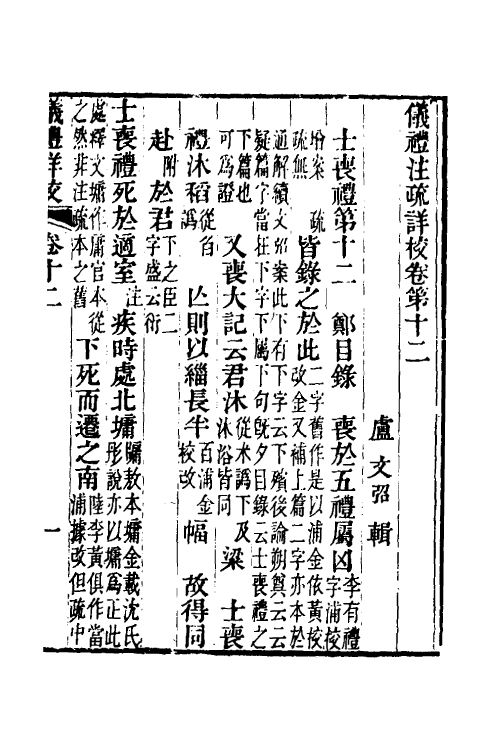 儀禮注疏詳校卷第十二
盧文弨輯
士喪禮第十二　鄭目錄　喪於五禮屬凶李有禮字浦校
疏疏無　皆錄之於此二字舊作是以浦金依黃校改金又補上篇二字亦本於
通解續文弨案此下有下字云下殯後論朔奠云云疑篇字當在下字下屬下句旣夕目錄云士喪禮之
下篇也可為證　又喪大記云君沐從木譌下沐浴皆同　及粱　士喪
禮沐稻從臽譌　亾則以緇長半百浦金校改幅　故得同
赴附於君下之臣二字盛云衍
士喪禮死於適室　注　疾時處北墉牖敖本墉金載沈氏彤說亦以墉爲正此
處釋文墉作庸官本從之然非注疏本之舊　下死而遷之南陸李黃俱作當浦據改但疏中
儀禮詳校　卷十二　一